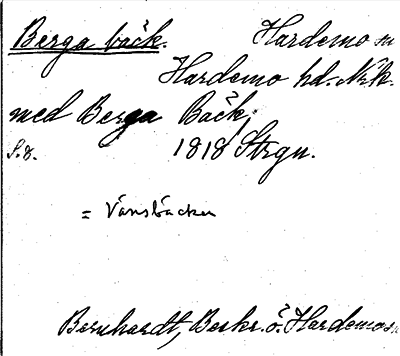 Berga bäck. Hardemo sn
Hardemo hd. Nrk.
med Berga Bäck,
S. d. 1818 Strgn.
= Vänsbäcken
Bernhardt, Beskr. ö. Hardemo sn